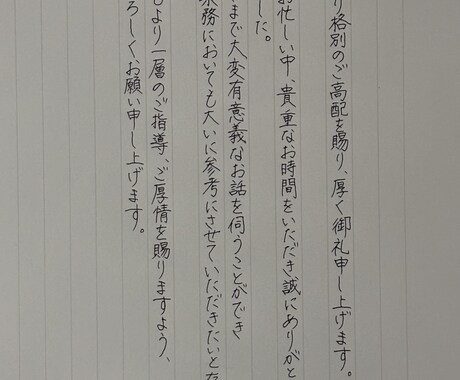 り格別のご高配を賜り、厚く御礼申し上げます。
お忙しい中、貴重なお時間をいただき誠にありがと
した。
まで大変有意義なお話を伺うことができ
務においても大いに参考にさせていただきたいと
より一層のご指導、ご厚情を賜りますよう、
ろしくお願い申し上げます。